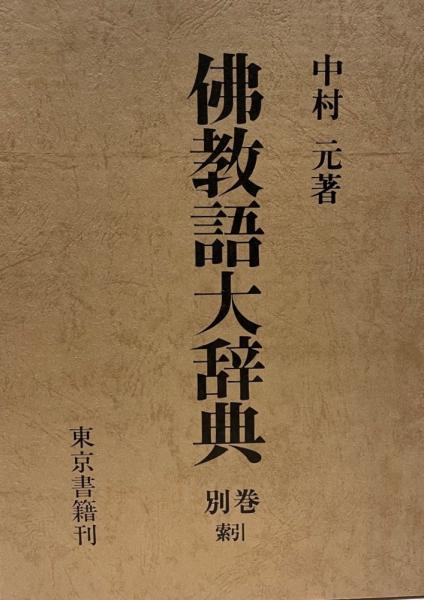 中村 元著
佛教語大辞典
別巻
索引
東京書籍刊